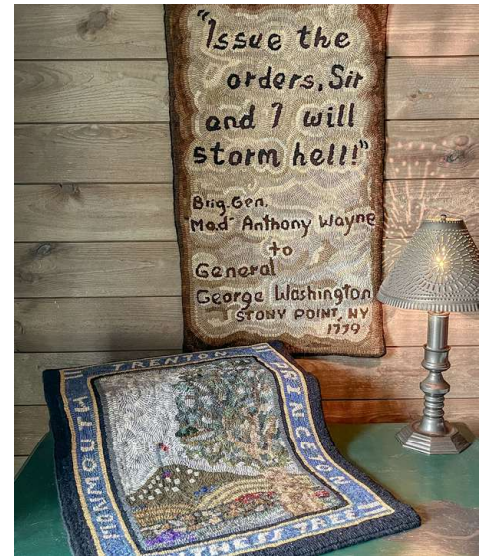 "Issue the
orders, Sir
and I will
storm hell!"
Brig. Gen.
"Mad" Anthony Wayne
to
General
George Washington
STONY POINT, NY
1779
TRENTON
PRINCETON
MONMOUTH
WITNESS TREE